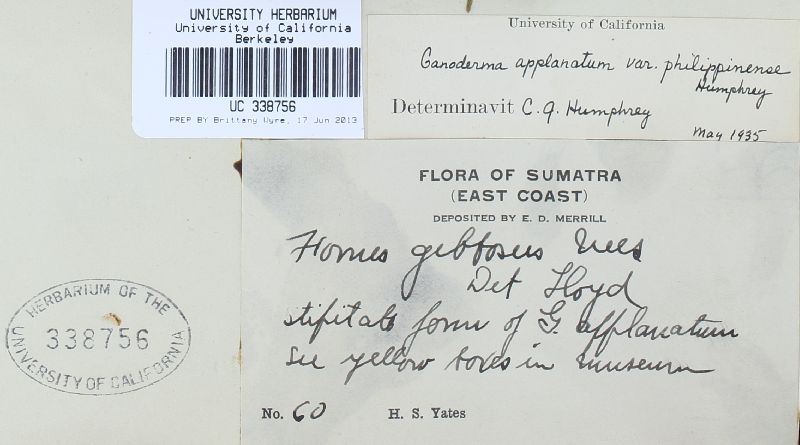 UNIVERSITY HERBARIUM
University of California
Berkeley
UC 338756
PREP BY Brittany Wyre, 17 Jun 2013
University of California
Ganoderma applanatum var. philippinense
Humphrey
Determinavit C. J. Humphrey
May 1935
FLORA OF SUMATRA
(EAST COAST)
DEPOSITED BY E. D. MERRILL
Fomes gibbosus Nees
Det Lloyd
stipitate form of G. applanatum
See yellow boxes in museum
No. 60 H. S. Yates
HERBARIUM OF THE
338756
UNIVERSITY OF CALIFORNIA